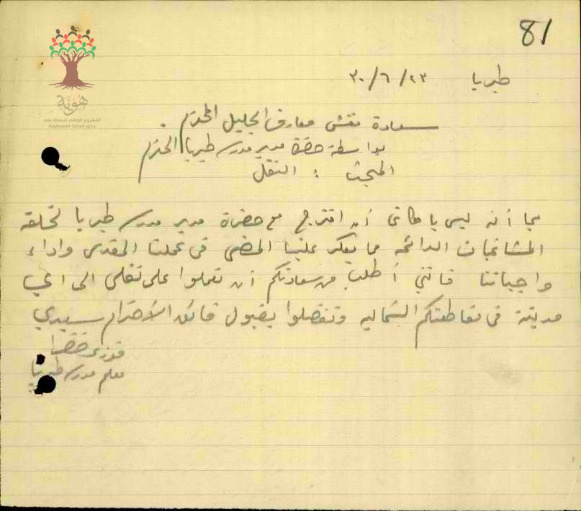 81
طبريا ٢٣/٦/٣٠
سعادة مفتش معارف الجليل المحترم
بواسطة حضرة مدير مدرسة طبريا المحترم
المبحث : النقل
بما أنه ليس بامكاني أن امتزج مع حضرة مدير مدرسة طبريا لخلقه
المشاغبات الدائمه مما يعكر علينا المضي في عملنا المقدس واداء
واجباتنا فانني أطلب من سعادتكم أن تعملوا على نقلي الى اي
مدينة في مقاطعتكم الشماليه وتفضلوا بقبول فائق الأحترام سيدي
فوزي
معلم مدرسة طبريا
هوية